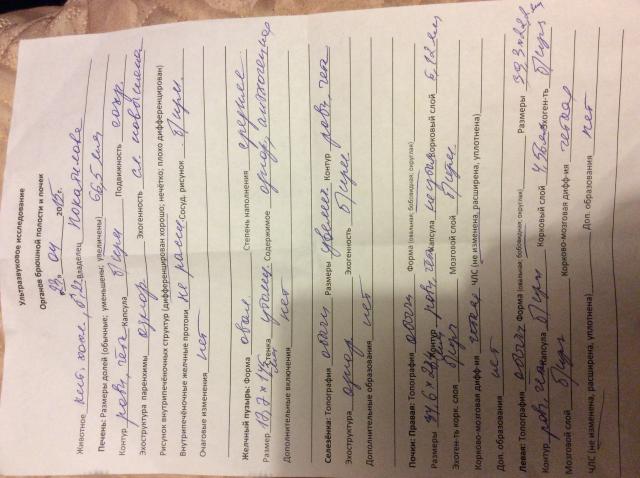 Ультразвуковое исследование
Органов брюшной полости и почек
«22» 04 2015 г.
Животное Владелец
Печень: Размеры долей (обычные; уменьшены; увеличены) 66,5 мм
Контур ровн, четк Капсула б/изм Подвижность сохр.
Эхоструктура паренхимы однор Эхогенность
Рисунок внутрипечёночных структур (дифференцирован хорошо; нечётко; плохо дифференцирован)
Внутрипечёночные желчные протоки не расш Сосуд. рисунок б/изм.
Очаговые изменения нет
Желчный пузырь: Форма овал Степень наполнения среднее
Размер Стенка Содержимое однор,
Дополнительные включения нет
Селезёнка: Топография обычн Размеры увелич Контур ровн, четк
Эхоструктура однор Эхогенность б/изм
Дополнительные образования нет
Почки: Правая: Топография обычн Форма (овальная, бобовидная, округлая)
Размеры Контур ровн, четк Капсула Корковый слой
Эхоген-ть корк. слоя б/изм Мозговой слой б/изм
Корково-мозговая дифф-ия четкая ЧЛС (не изменена, расширена, уплотнена)
Доп. образования нет
Левая: Топография обычн Форма (овальная, бобовидная, округлая) Размеры
Контур ровн, четк Капсула б/изм Корковый слой Эхоген-ть б/изм
Мозговой слой б/изм Корково-мозговая дифф-ия четкая
ЧЛС (не изменена, расширена, уплотнена) Доп. образования нет